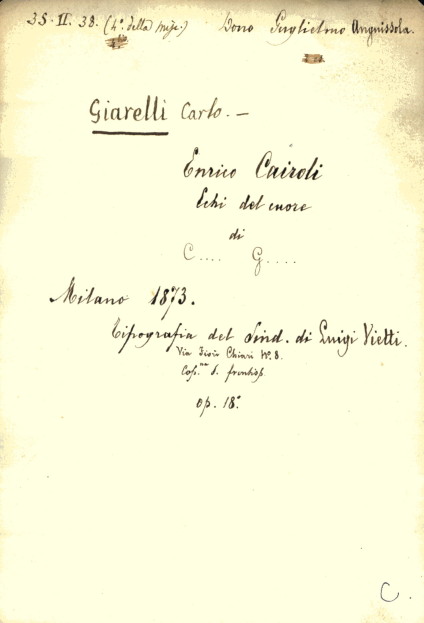 35. II. 38. (4º. della Misc.) Dono Guglielmo Anguissola.
Giarelli Carlo. —
Enrico Cairoli
Echi del cuore
di
C.... G....
Milano 1873.
Tipografia del Sind. di Luigi Vietti.
Via Chiari Nº. 8.
d. frontisp.
op. 18º.
C.